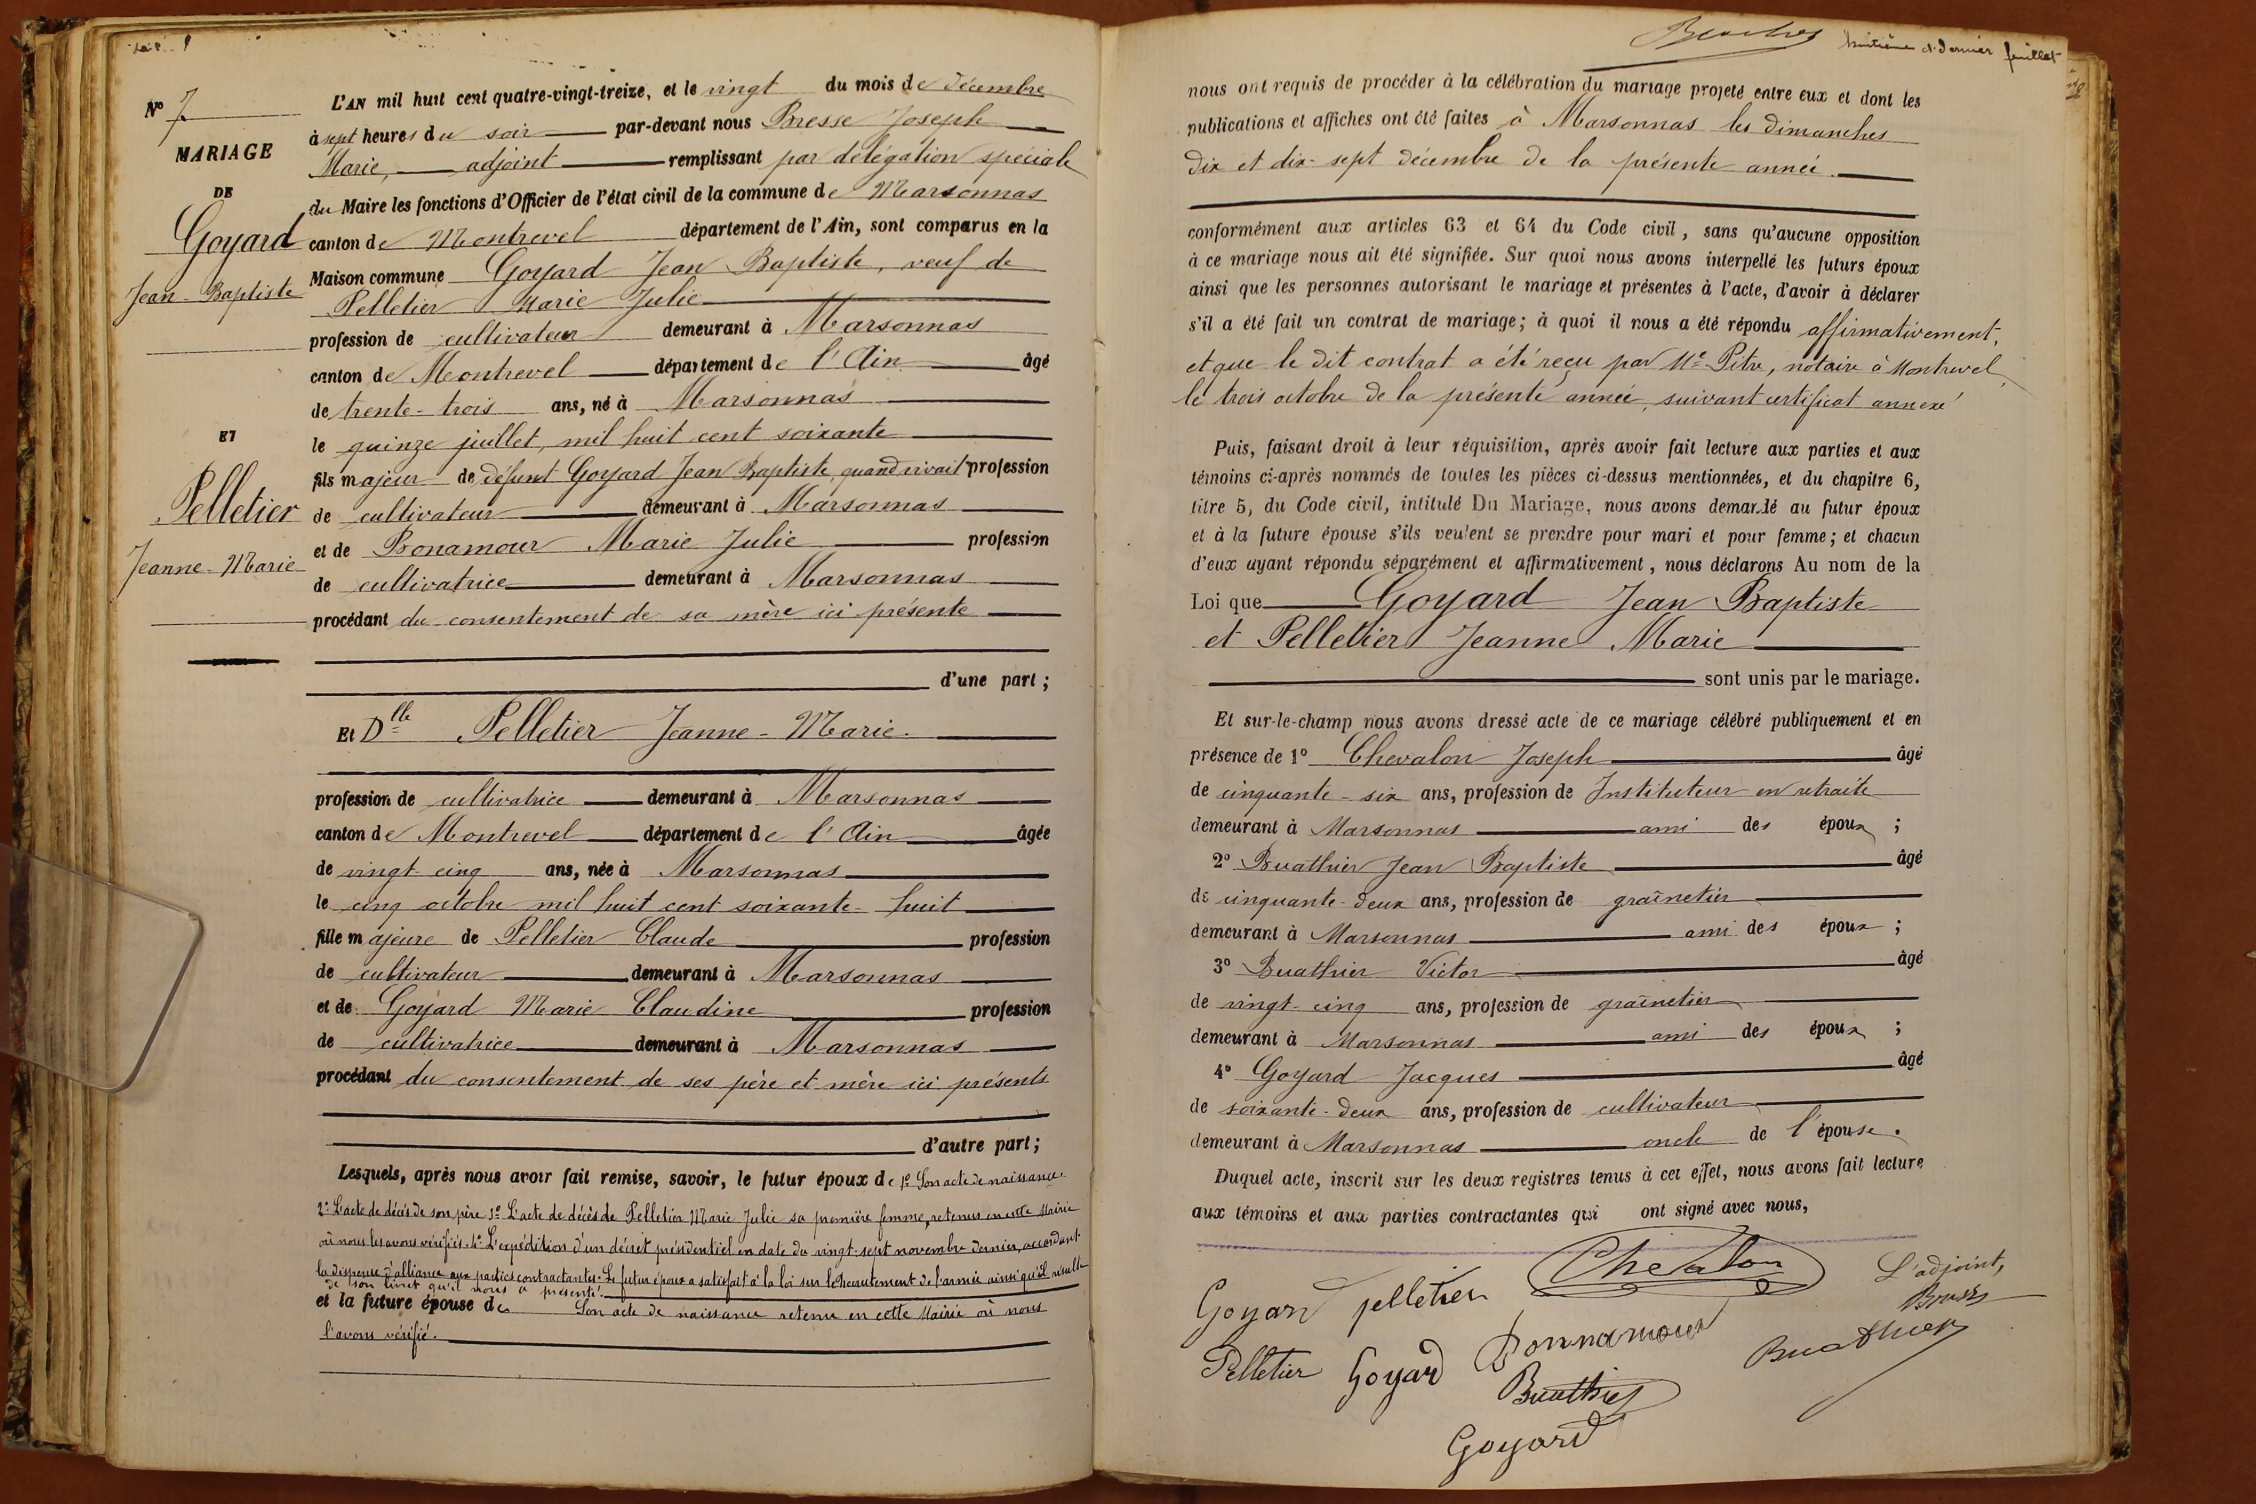 N° 7
MARIAGE
DE
Goyard
Jean-Baptiste
ET
Pelletier
Jeanne-Marie
L'AN mil huit cent quatre-vingt-treize, et le vingt du mois de décembre
à sept heures du soir par-devant nous Bresse Joseph
Marie, adjoint remplissant par délégation spéciale
du Maire les fonctions d'Officier de l'état civil de la commune de Marsonnas
canton de Montrevel département de l'Ain, sont comparus en la
Maison commune Goyard Jean Baptiste, veuf de
Pelletier Marie Julie
profession de cultivateur demeurant à Marsonnas
canton de Montrevel département de l'Ain âgé
de trente-trois ans, né à Marsonnas
le quinze juillet, mil huit cent soixante
fils majeur de défunt Goyard Jean Baptiste, quand vivait profession
de cultivateur demeurant à Marsonnas
et de Bonamour Marie Julie profession
de cultivatrice demeurant à Marsonnas
procédant du consentement de sa mère ici présente
d'une part ;
Et Dlle Pelletier Jeanne-Marie.
profession de cultivatrice demeurant à Marsonnas
canton de Montrevel département de l'Ain âgée
de vingt-cinq ans, née à Marsonnas
le cinq octobre mil huit cent soixante-huit
fille majeure de Pelletier Claude profession
de cultivateur demeurant à Marsonnas
et de Goyard Marie Claudine profession
de cultivatrice demeurant à Marsonnas
procédant du consentement de ses père et mère ici présents
d'autre part ;
Lesquels, après nous avoir fait remise, savoir, le futur époux de 1° Son acte de naissance.
2° L'acte de décès de son père 3° L'acte de décès de Pelletier Marie Julie sa première femme, retenus en cette Mairie
où nous les avons vérifiés. 4° L'expédition d'un décret présidentiel en date du vingt-sept novembre dernier, accordant
la dispense d'alliance aux parties contractantes. Le futur époux a satisfait à la loi sur le Recrutement de l'armée ainsi qu'il résulte
de son livret qu'il nous a présenté.
et la future épouse de Son acte de naissance retenu en cette Mairie où nous
l'avons vérifié.
huitième et dernier feuillet
nous ont requis de procéder à la célébration du mariage projeté entre eux et dont les
publications et affiches ont été faites à Marsonnas les dimanches
dix et dix-sept décembre de la présente année.
conformément aux articles 63 et 64 du Code civil, sans qu'aucune opposition
à ce mariage nous ait été signifiée. Sur quoi nous avons interpellé les futurs époux
ainsi que les personnes autorisant le mariage et présentes à l'acte, d'avoir à déclarer
s'il a été fait un contrat de mariage ; à quoi il nous a été répondu affirmativement,
et que le dit contrat a été reçu par Me Pitre, notaire à Montrevel,
le trois octobre de la présente année, suivant certificat annexé
Puis, faisant droit à leur réquisition, après avoir fait lecture aux parties et aux
témoins ci-après nommés de toutes les pièces ci-dessus mentionnées, et du chapitre 6,
titre 5, du Code civil, intitulé Du Mariage, nous avons demandé au futur époux
et à la future épouse s'ils veulent se prendre pour mari et pour femme ; et chacun
d'eux ayant répondu séparément et affirmativement, nous déclarons Au nom de la
Loi que Goyard Jean Baptiste
et Pelletier Jeanne Marie
sont unis par le mariage.
Et sur-le-champ nous avons dressé acte de ce mariage célébré publiquement et en
présence de 1° Chevalon Joseph âgé
de cinquante-six ans, profession de Instituteur en retraite
demeurant à Marsonnas ami des époux ;
2° Buathier Jean Baptiste âgé
de cinquante-deux ans, profession de graînetier
demeurant à Marsonnas ami des époux ;
3° Buathier Victor âgé
de vingt-cinq ans, profession de graînetier
demeurant à Marsonnas ami des époux ;
4° Goyard Jacques âgé
de soixante-deux ans, profession de cultivateur
demeurant à Marsonnas oncle de l'épouse.
Duquel acte, inscrit sur les deux registres tenus à cet effet, nous avons fait lecture
aux témoins et aux parties contractantes qui ont signé avec nous,
Goyard pelletier Chevalon L'adjoint,
Bresse
Pelletier Goyard Bonnamour Buathier
Buathier
Goyard